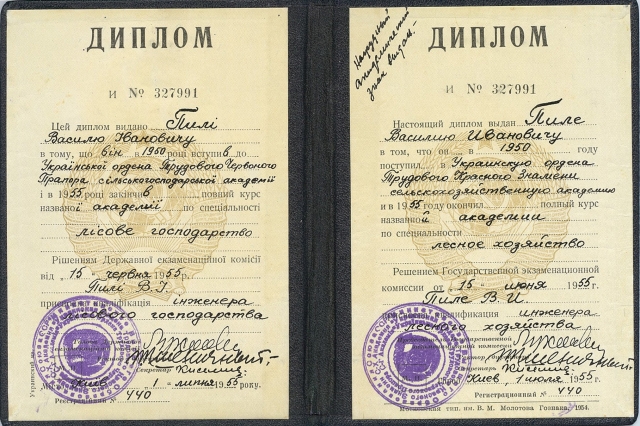 ДИПЛОМ
И № 327991
Цей диплом видано Пилі
Василю Івановичу
в тому, що він в 1950 році вступив до
Української ордена Трудового Червоного
Прапора сільськогосподарської академії
і в 1955 році закінчив повний курс
названої академії по спеціальності
лісове господарство
Рішенням Державної екзаменаційної комісії
від „15" червня 1955 р.
Пилі В.І.
кваліфікація інженера
лісового господарства
Секретар
Київ 1 липня 1955 року.
Реєстраційний № 440
Нагрудный
академический
знак выдан.
ДИПЛОМ
И № 327991
Настоящий диплом выдан Пиле
Василию Ивановичу
в том, что он в 1950 году
поступил в Украинскую ордена
Трудового Красного Знамени
сельскохозяйственную академию
и в 1955 году окончил полный курс
названной академии
по специальности
лесное хозяйство
Решением Государственной экзаменационной
комиссии от „15" июня 1955 г.
Пиле В.И.
квалификация инженера
лесного хозяйства
Секретарь
Киев, 1 июля 1955 г.
Регистрационный № 440
Московская тип. им. В. М. Молотова Гознака, 1954.